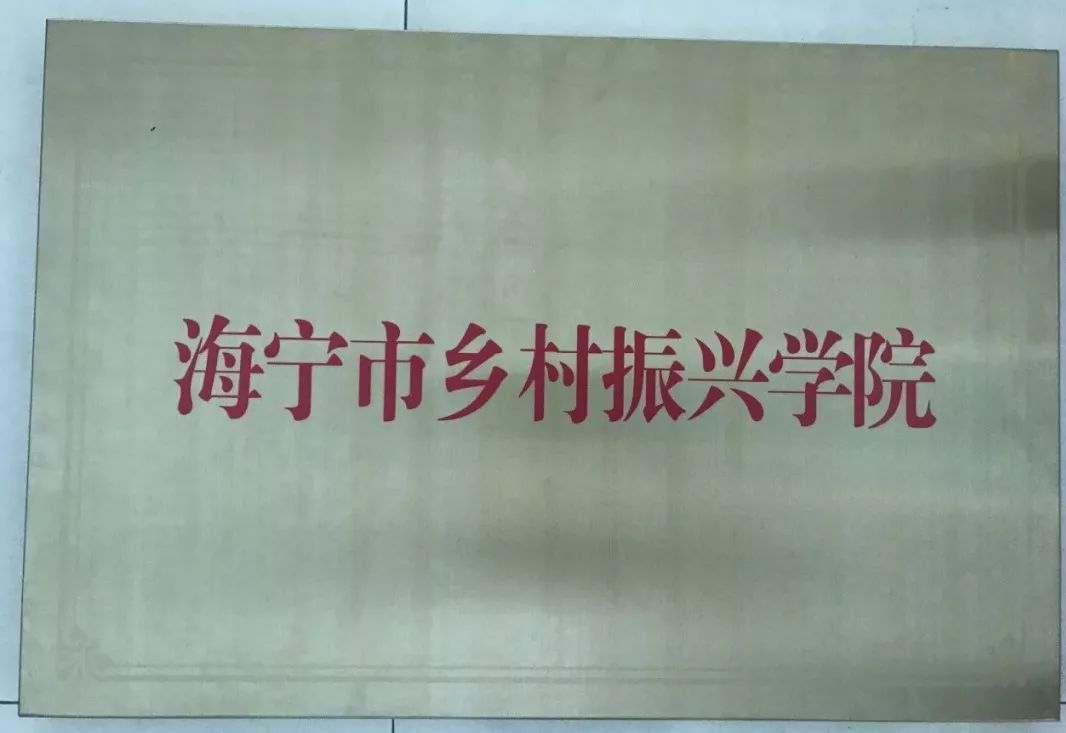 海宁市乡村振兴学院